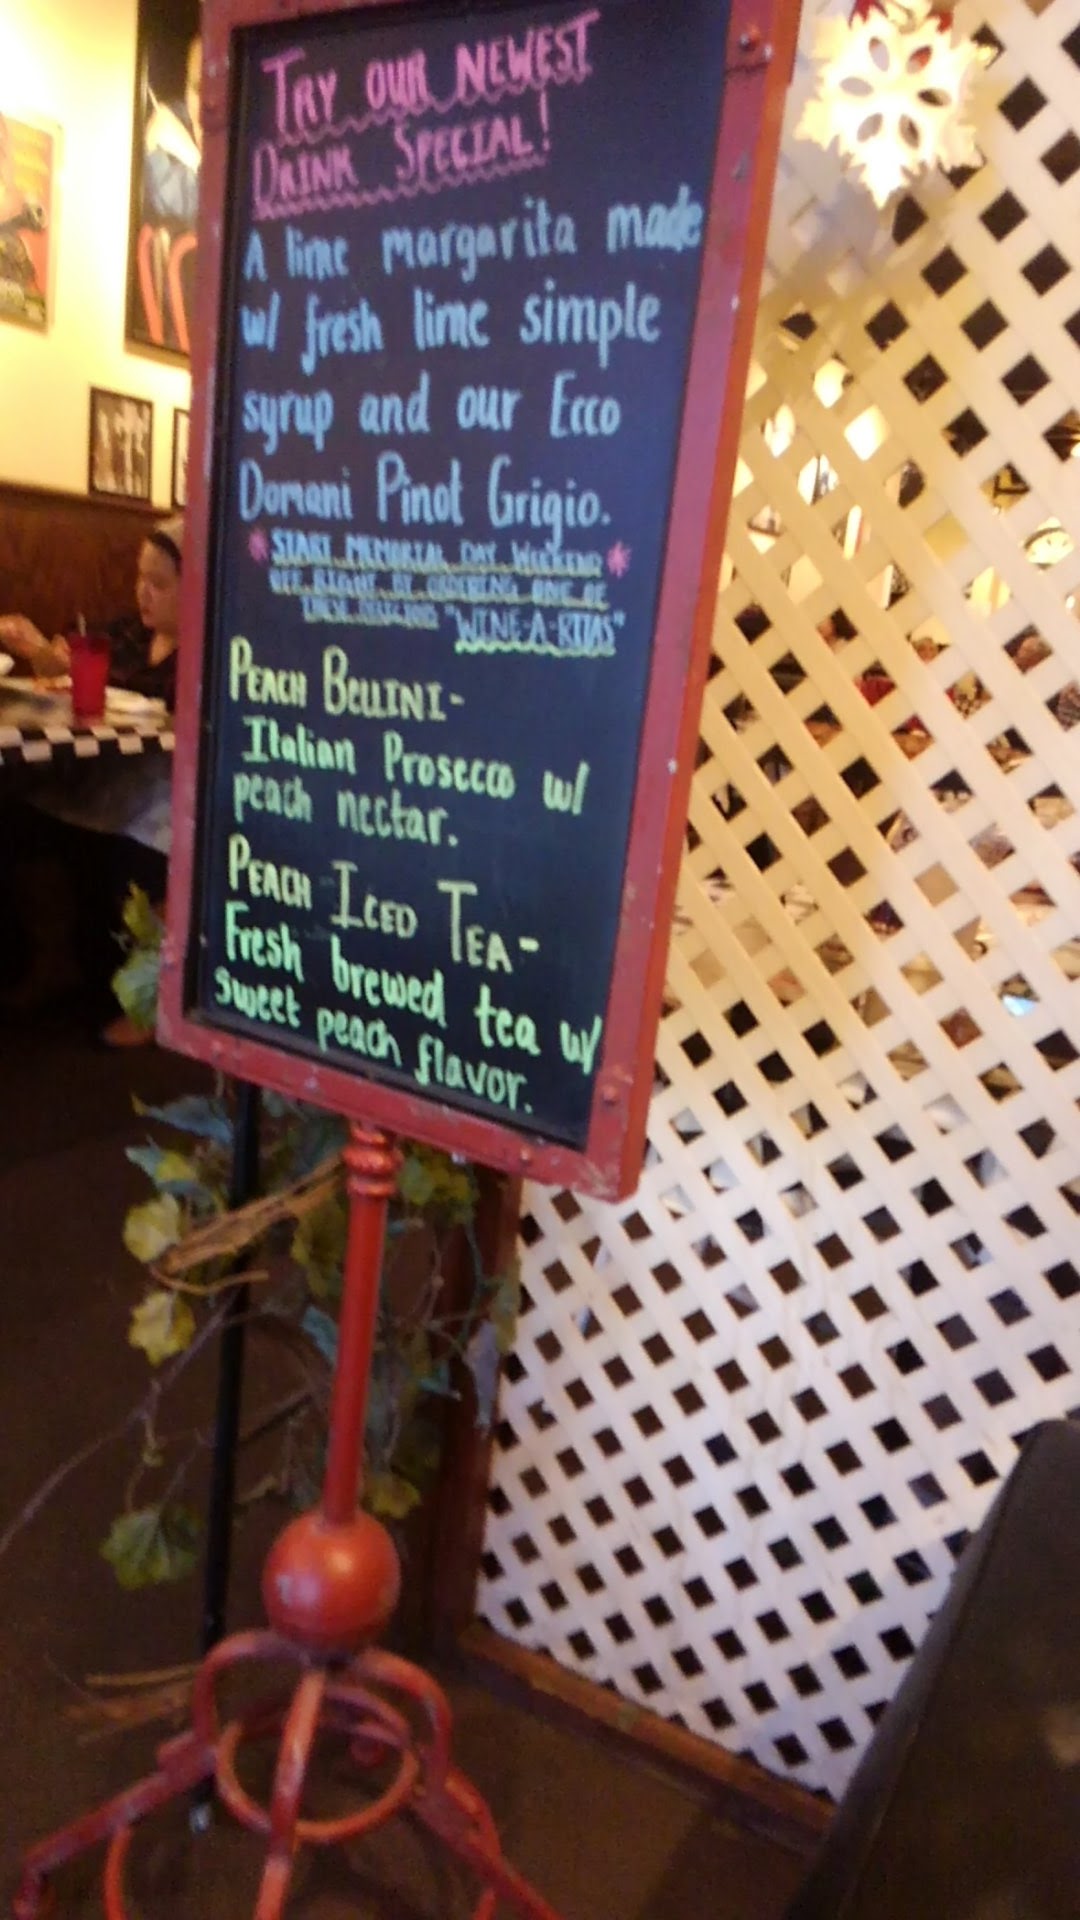 TRY OUR NEWEST
DRINK SPECIAL!
A lime margarita made
w/ fresh lime simple
syrup and our Ecco
Domani Pinot Grigio.
* START MEMORIAL DAY WEEKEND *
OFF RIGHT BY ORDERING ONE OF
THESE DELICIOUS "WINE-A-RITAS"
PEACH BELLINI-
Italian Prosecco w/
peach nectar.
PEACH ICED TEA-
Fresh brewed tea w/
sweet peach flavor.